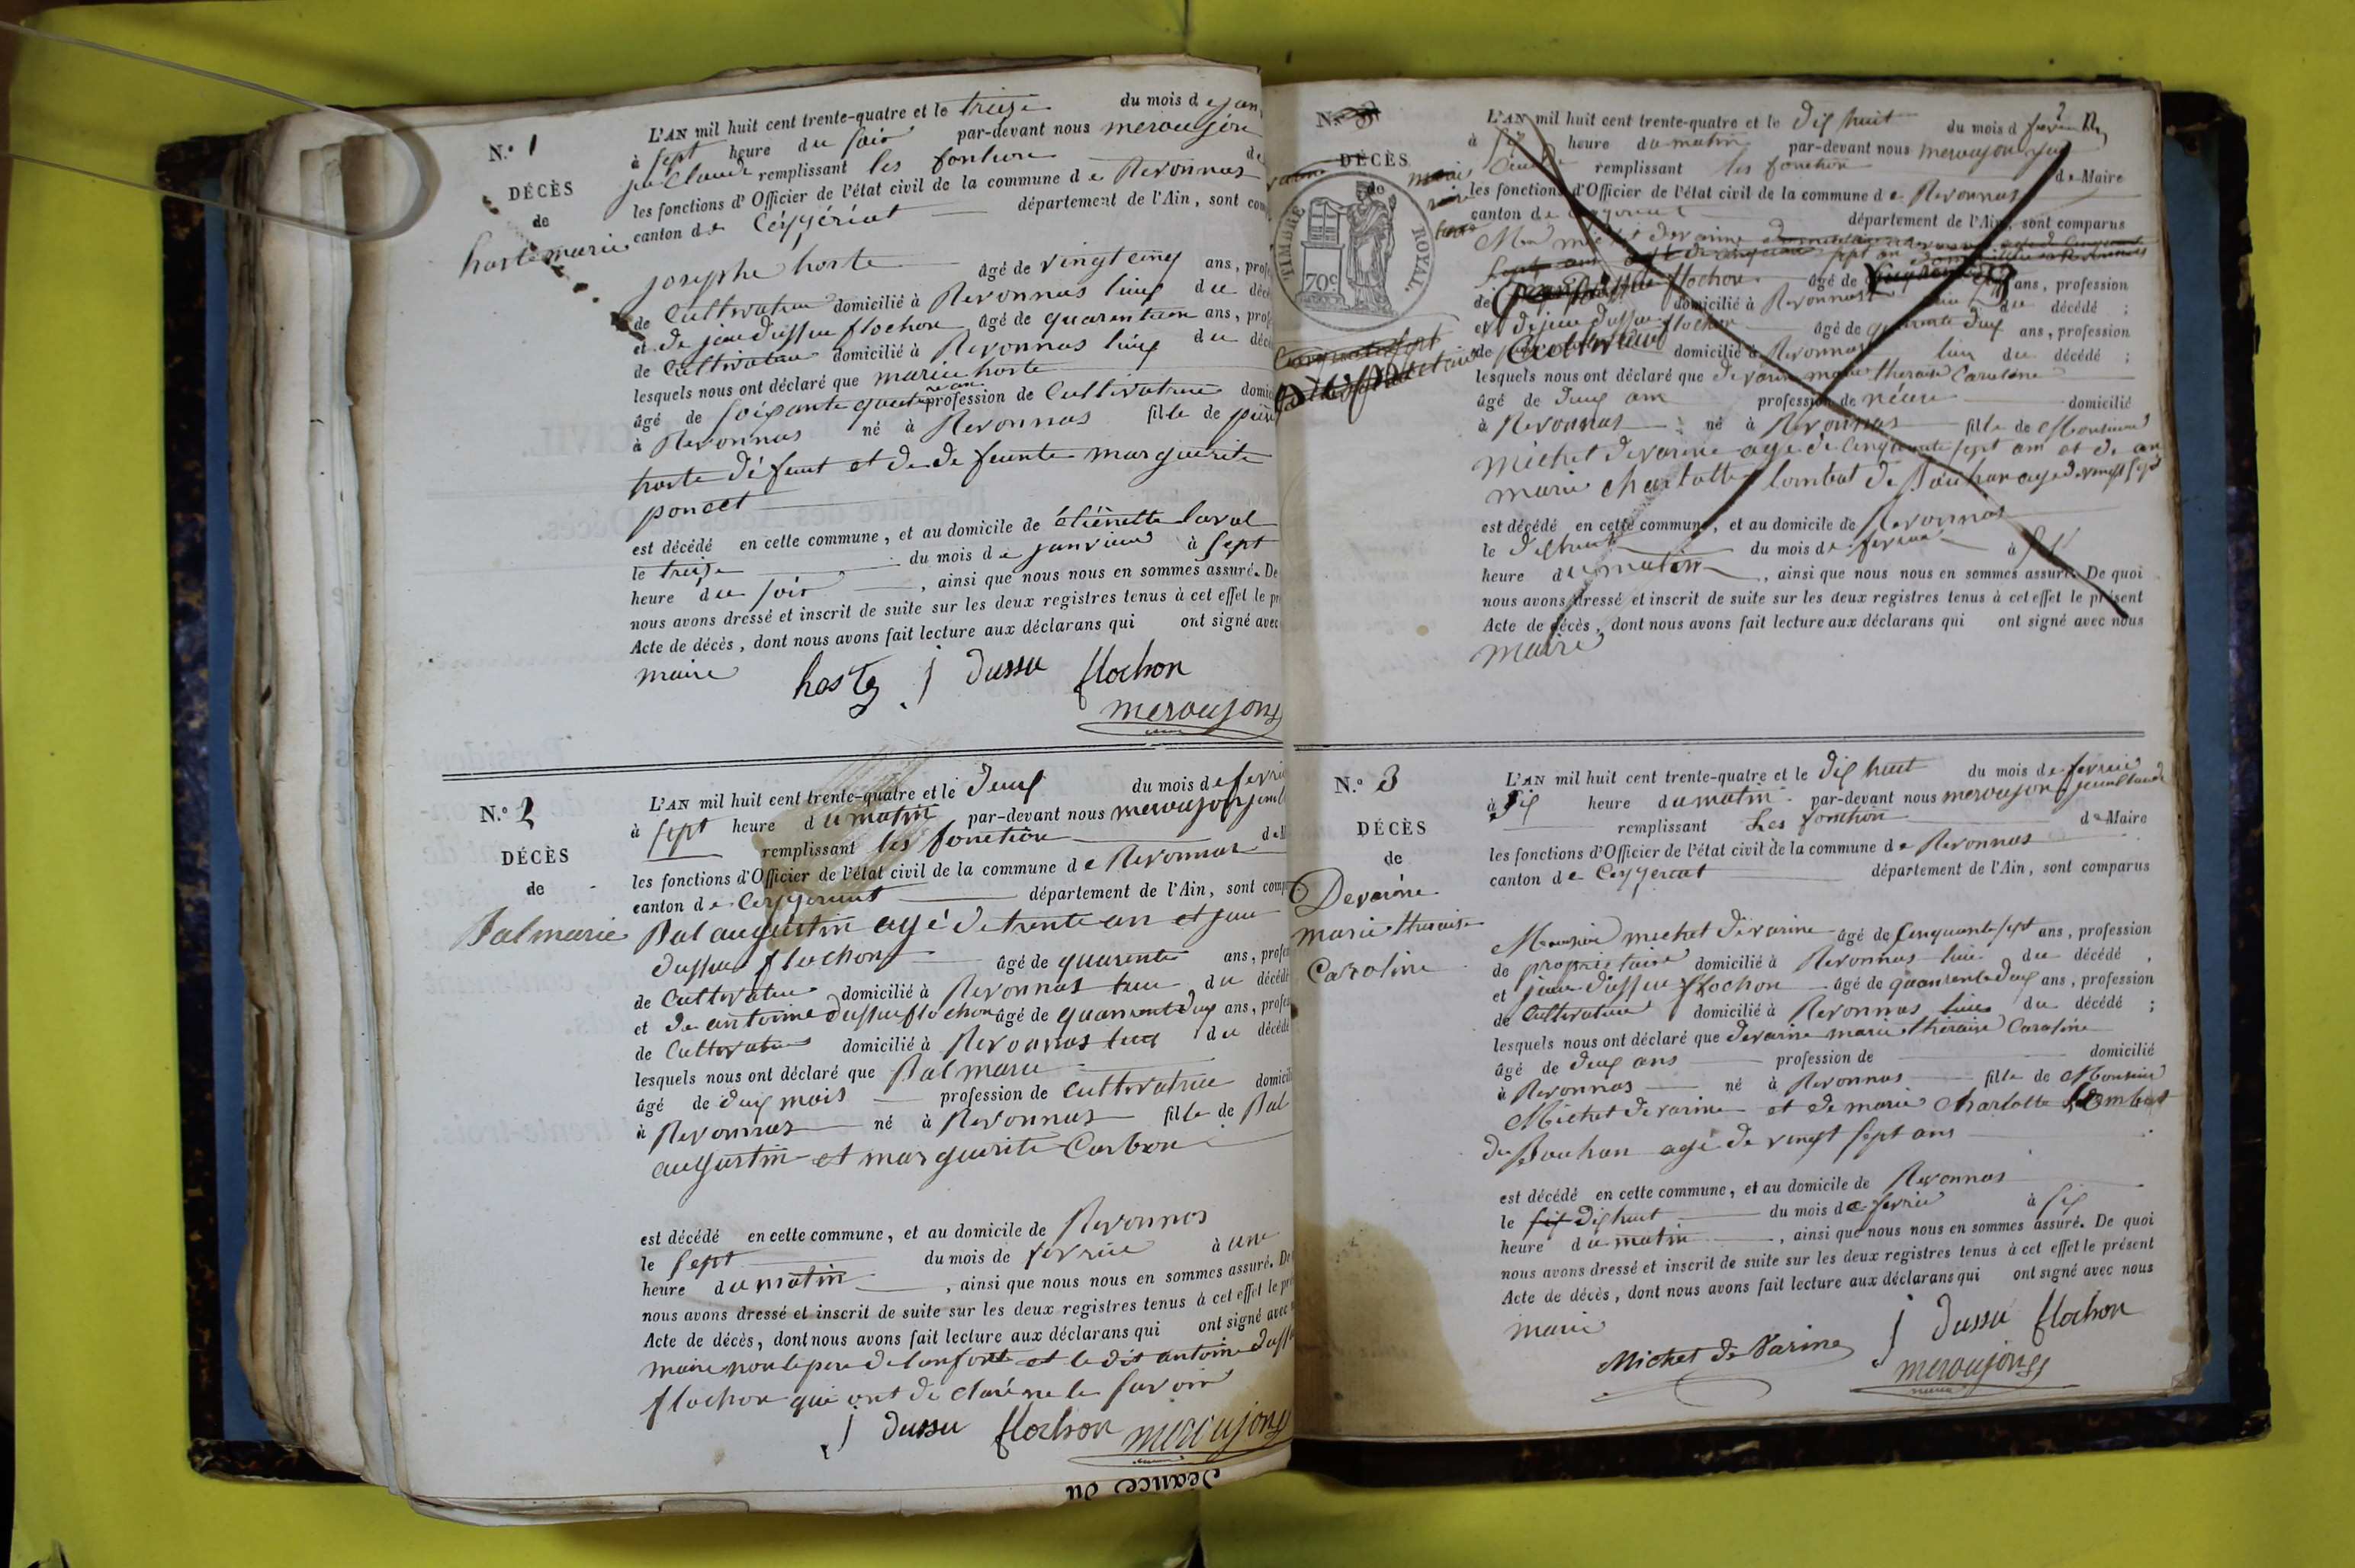 N.° 1
DÉCÈS
de
horte marie
L'AN mil huit cent trente-quatre et le treize du mois de jan
à sept heure du soir par-devant nous meroujon
jn Claude remplissant les fonction de
les fonctions d'Officier de l'état civil de la commune de Revonnas
canton de Ceyzériat département de l'Ain, sont com
josephe horte âgé de vingt cinq ans, prof
de Cultivateur domicilié à Revonnas lieux du décé
et de jean dussue flochon âgé de quarente un ans, prof
de Cultivateur domicilié à Revonnas lieux du décé
lesquels nous ont déclaré que marie horte
âgé de soixante quatre profession de Cultivatrice domic
à Revonnas né à Revonnas fille de pierre
horte défunt et de defeunte marguerite
poncet
est décédé en cette commune, et au domicile de étiènette laval
le treize du mois de janvier à sept
heure du soir, ainsi que nous nous en sommes assuré. De
nous avons dressé et inscrit de suite sur les deux registres tenus à cet effet le pr
Acte de décès, dont nous avons fait lecture aux déclarans qui ont signé avec
maire
horte J Dussu flochon
meroujon
N.° 2
DÉCÈS
de
Bal marie
L'AN mil huit cent trente-quatre et le deux du mois de fevrie
à sept heure du matin par-devant nous meroujon
remplissant les fonction de M
les fonctions d'Officier de l'état civil de la commune de Revonnas
canton de Ceyzeriat département de l'Ain, sont comp
Bal augustin agé de trente an et jean
dussue flochon âgé de quarente ans, profes
de Cultivateur domicilié à Revonnas lieu du décédé
et de antoine dussue flochon âgé de quarente deux ans, profes
de Cultivateur domicilié à Revonnas lieu du décédé
lesquels nous ont déclaré que Bal marie
âgé de deux mois profession de cultivatrice domicili
à Revonnas né à Revonnas fille de Bal
augustin et marguerite Carbon
est décédé en cette commune, et au domicile de Revonnas
le sept du mois de fevrie à une
heure du matin, ainsi que nous nous en sommes assuré. De
nous avons dressé et inscrit de suite sur les deux registres tenus à cet effet le pré
Acte de décès, dont nous avons fait lecture aux déclarans qui ont signé avec
maire non le pere de lenfant et le dit antoine duss
flochon qui ont de claré ne le savoir
J Dussu flochon meroujon
Séance du
N.° 3
DÉCÈS
de
TIMBRE ROYAL.
70c
L'AN mil huit cent trente-quatre et le dix huit du mois d
à six heure du matin par-devant nous meroujon
Claude remplissant les fonction de Maire
les fonctions d'Officier de l'état civil de la commune de Revonnas
canton de département de l'Ain, sont comparus
flochon âgé de ans, profession
de domicilié à Revonnas lieu du décédé ;
et de jean dussue flochon âgé de quarente deux ans, profession
de domicilié à Revonnas lieu du décédé ;
lesquels nous ont déclaré que devarine marie theraise Caroline
âgé de deux ans profession de domicilié
à Revonnas né à Revonnas fille de Monsieur
michet devarine agé de cinquante sept ans et de
marie charlotte lombat de Bouhan agé de vingt sept
est décédé en cette commune, et au domicile de Revonnas
le dix huit du mois de fevrier à six
heure du matin, ainsi que nous nous en sommes assuré. De quoi
nous avons dressé et inscrit de suite sur les deux registres tenus à cet effet le présent
Acte de décès, dont nous avons fait lecture aux déclarans qui ont signé avec nous
maire
N.° 3
DÉCÈS
de
Devarine
marie theraise
Caroline
L'AN mil huit cent trente-quatre et le dix huit du mois de fevrie
à six heure du matin par-devant nous meroujon jean Claude
remplissant Les fonction de Maire
les fonctions d'Officier de l'état civil de la commune de Revonnas
canton de Ceyzeriat département de l'Ain, sont comparus
Monsieur michet devarine âgé de Cinquante sept ans, profession
de proprietaire domicilié à Revonnas lieu du décédé,
et jean dussue flochon âgé de quarente deux ans, profession
de Cultivateur domicilié à Revonnas lieu du décédé ;
lesquels nous ont déclaré que devarine marie theraise Caroline
âgé de deux ans profession de domicilié
à Revonnas né à Revonnas fille de Monsieur
Michet devarine et de marie charlotte Lombat
du Bouhan agé de vingt sept ans
est décédé en cette commune, et au domicile de Revonnas
le dix huit du mois de fevrie à six
heure du matin, ainsi que nous nous en sommes assuré. De quoi
nous avons dressé et inscrit de suite sur les deux registres tenus à cet effet le présent
Acte de décès, dont nous avons fait lecture aux déclarans qui ont signé avec nous
maire
Michet de Varine J Dussu flochon
meroujon